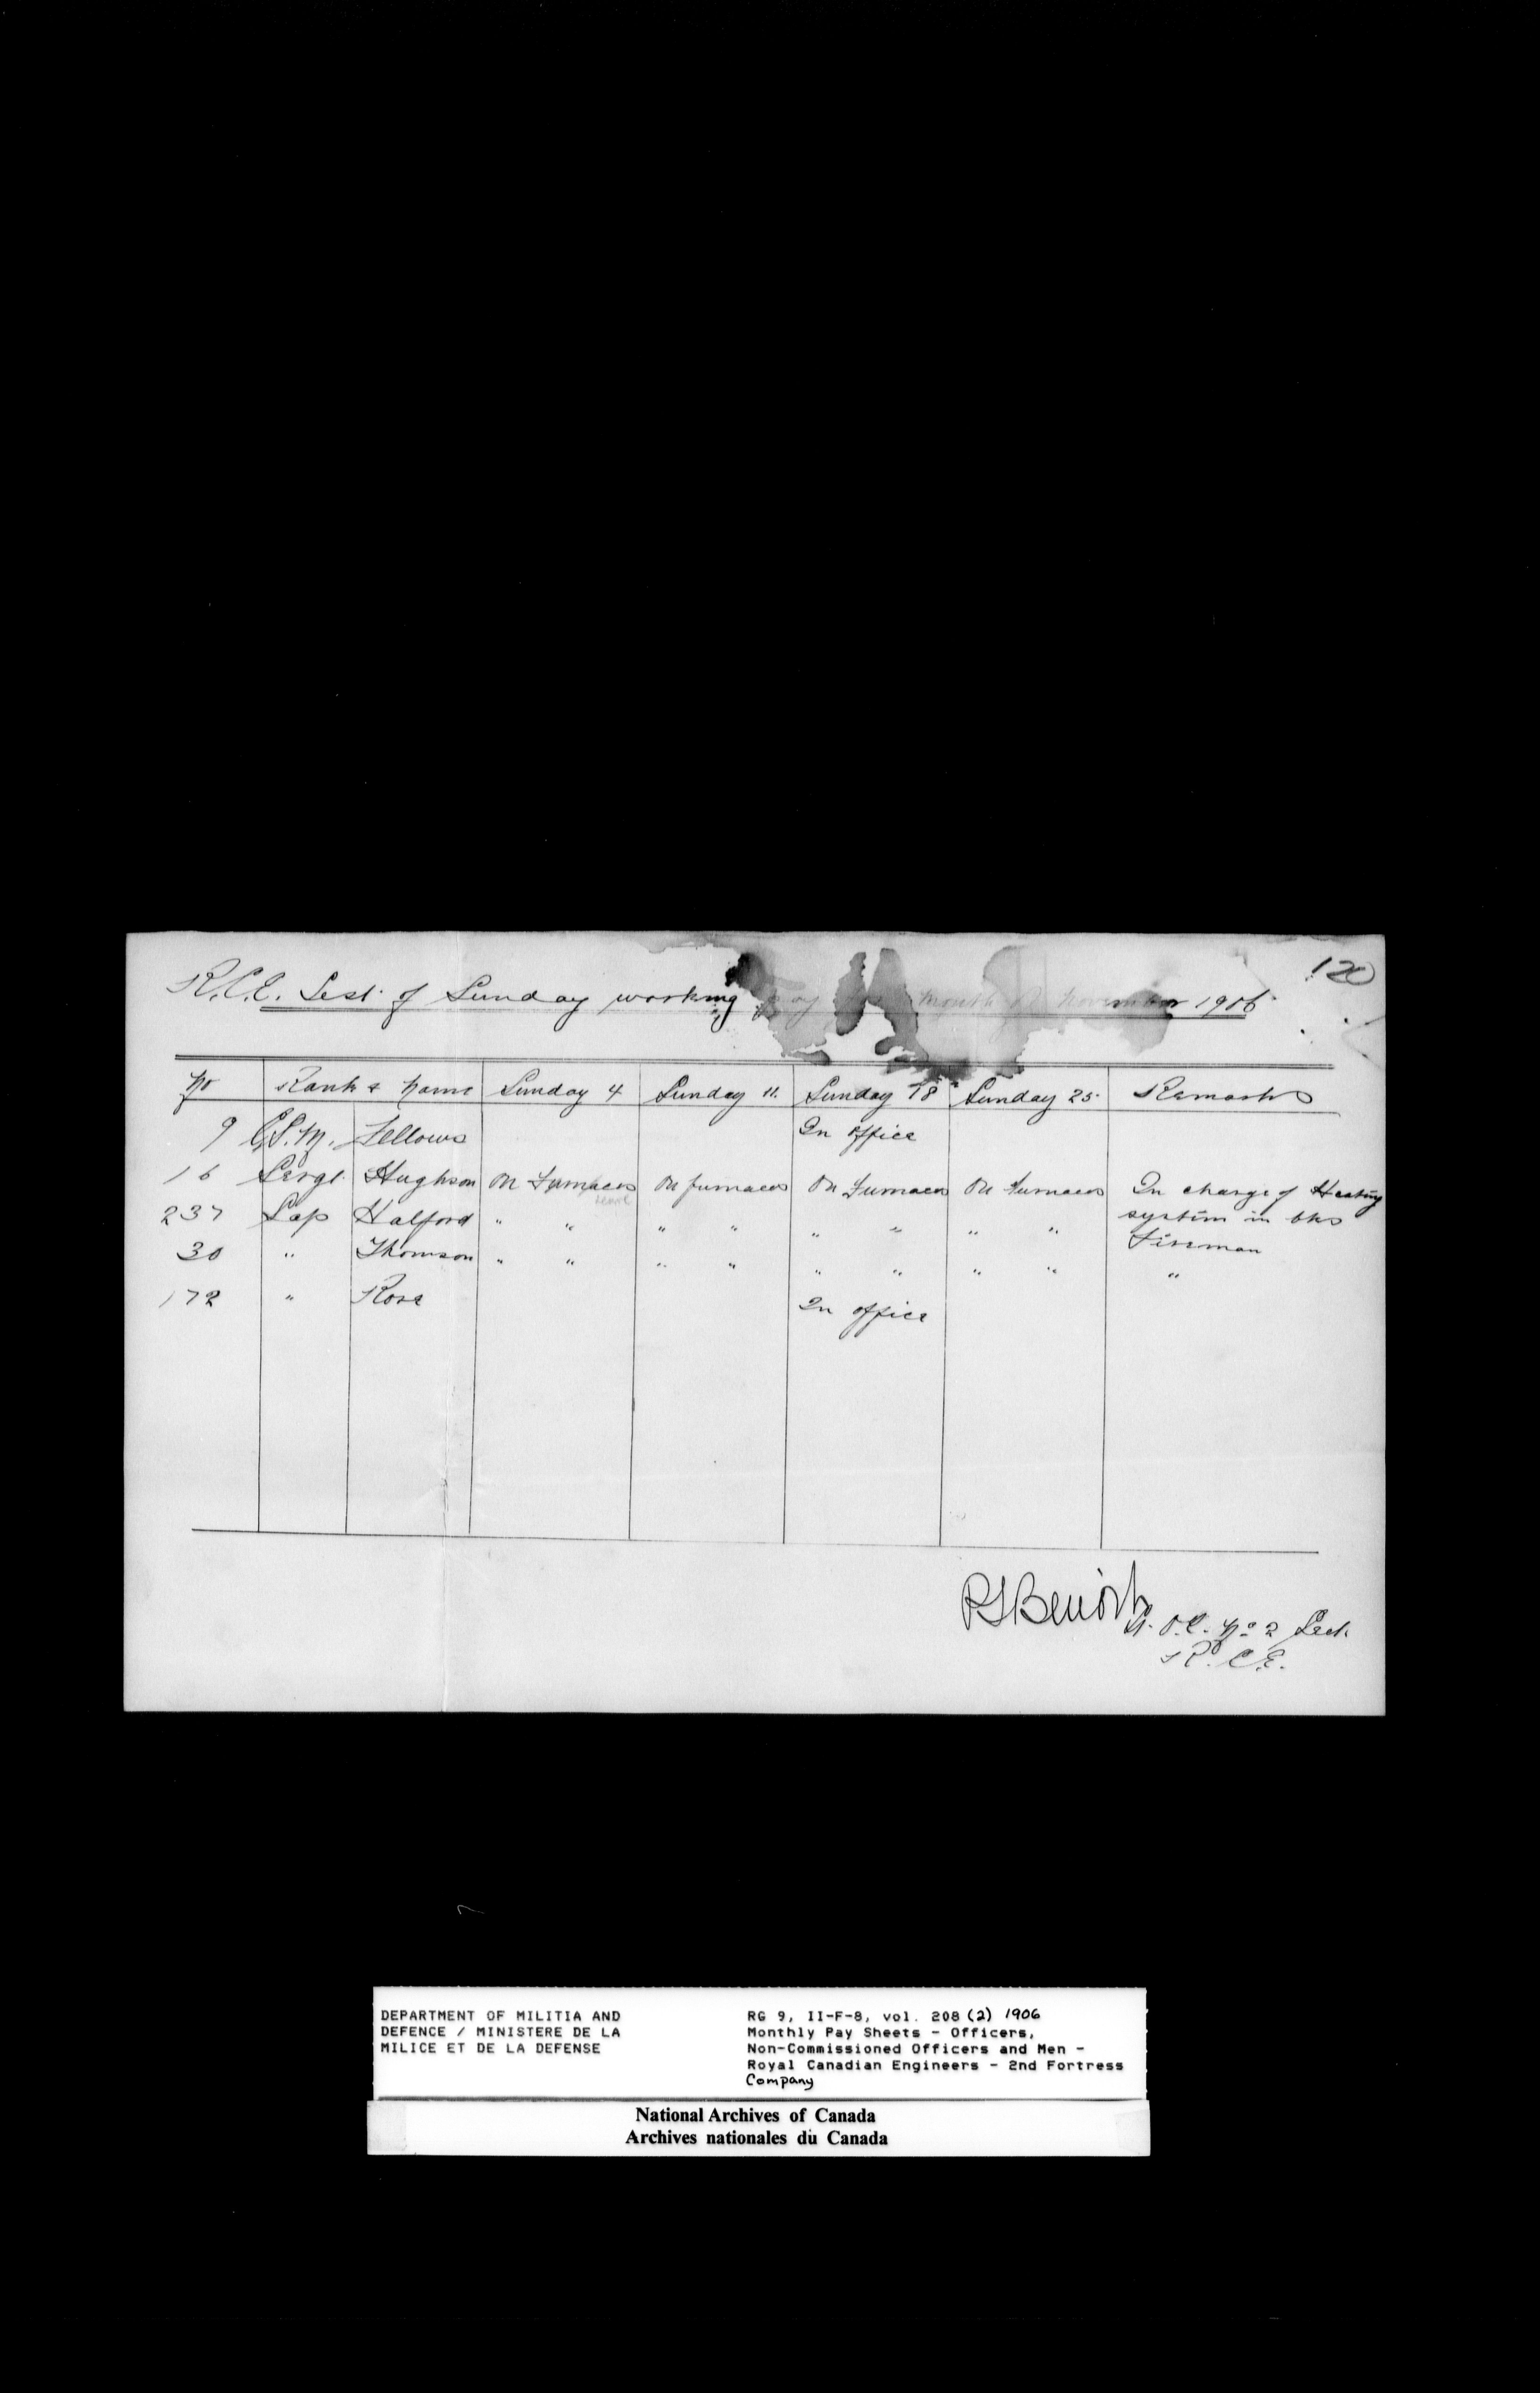 120
R.C.E. List of Sunday working pay month of November 1906
No Rank & Name Sunday 4 Sunday 11. Sunday 18 Sunday 25. Remarks
9 C.S.M. Fellows In office
16 Sergt. Hughson On Furnaces On furnaces On Furnaces On furnaces In charge of Heating
system in bks
237 Sap Halford " " " " " " " " Fireman
30 " Thomson " " " " " " " " "
172 " Rose In office
Lt. O.C. No 2 Sect.
R.C.E.
DEPARTMENT OF MILITIA AND
DEFENCE / MINISTERE DE LA
MILICE ET DE LA DEFENSE
RG 9, II-F-8, vol. 208 (2) 1906
Monthly Pay Sheets - Officers,
Non-Commissioned Officers and Men -
Royal Canadian Engineers - 2nd Fortress
Company
National Archives of Canada
Archives nationales du Canada